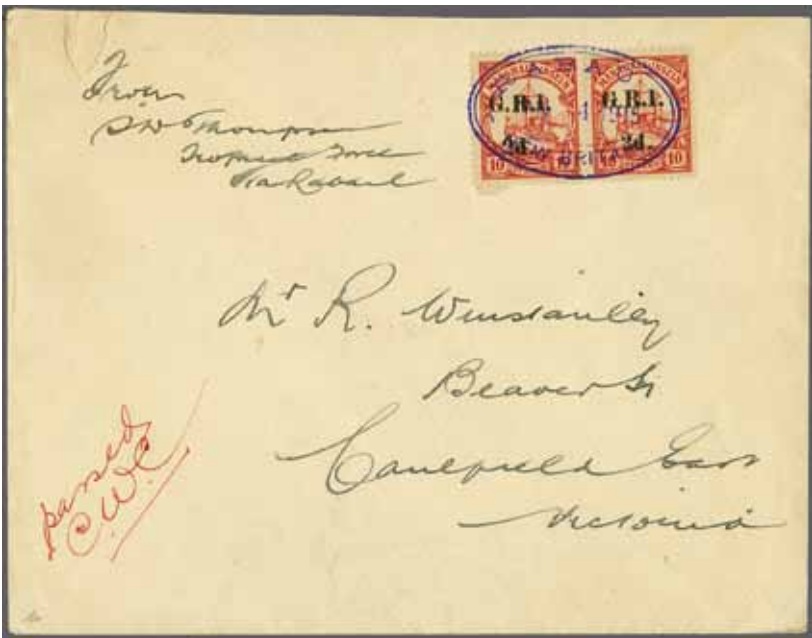 From
Thompson
Tropical Force
Via Rabaul
G.R.I. G.R.I.
2d. 2d.
10 10 10
NEW BRITAIN
Mr R. Winstanley
Beaver St
Caulfield East
Victoria
passed
C.W.C.